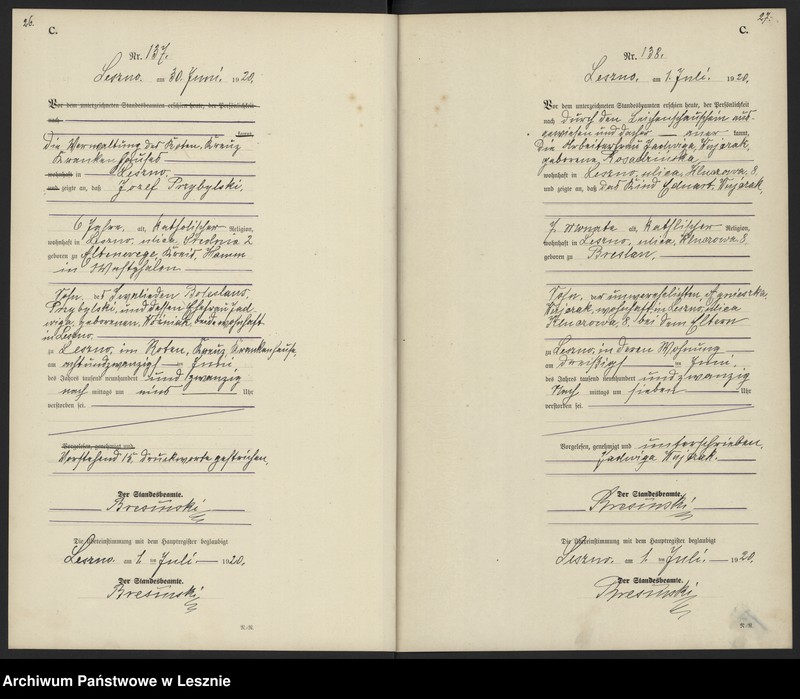 26.
C.
Nr. 137.
Leszno. am 30. Juni. 1920.
Vor dem unterzeichneten Standesbeamten erschien heute, der Persönlichkeit
nach
kannt,
Die Verwaltung des Roten. Kreuz
Kranken Hauses
wohnhaft in Leszno.
und zeigte an, daß Josef Przybylski,
6 Jahre, alt, katholischer Religion,
wohnhaft in Leszno, ulica, Średnia 2
geboren zu Kreis. Hamm
in Westphalen
Sohn, des Invaliden Boleslaus,
Przybylski, und dessen Ehefrau Jad
wiga, geborenen, beide wohnhaft
in Leszno
zu Leszno, im Roten, Kreuz Krankenhause,
am achtundzwanzigst Juni,
des Jahres tausend neunhundert und zwanzig
nach mittags um eins Uhr
verstorben sei.
Vorgelesen, genehmigt und
Vorstehend 15, Druckworte gestrichen,
Der Standesbeamte.
Bresinski
Die Übereinstimmung mit dem Hauptregister beglaubigt
Leszno. am 1. ten Juli. 1920.
Der Standesbeamte.
Bresinski
R.-R.
27.
C.
Nr. 138.
Leszno. am 1. Juli. 1920.
Vor dem unterzeichneten Standesbeamten erschien heute, der Persönlichkeit
nach durch den Leichenschauschein aus-
gewiesen und daher aner kannt,
die Arbeiterfrau Jadwiga, Wujarak,
geborene,
wohnhaft in Leszno, ulica, 8
und zeigte an, daß das Kind Eduart. Wujarak,
7. Monate alt, kathlischer Religion,
wohnhaft in Leszno, ulica, 8.
geboren zu Breslau.
Sohn, der unverehelichten, Agnieszka,
Wujarak, wohnhaft, in Leszno, ulica
8, bei dem Eltern
zu Leszno, in deren Wohnung
am dreißigst en Juni,
des Jahres tausend neunhundert und zwanzig
Nach mittags um sieben Uhr
verstorben sei.
Vorgelesen, genehmigt und unterschrieben,
Jadwiga Wujarak.
Der Standesbeamte.
Bresinski
Die Übereinstimmung mit dem Hauptregister beglaubigt
Leszno. am 1. ten Juli. 1920.
Der Standesbeamte.
Bresinski
R.-R.
Archiwum Państwowe w Lesznie